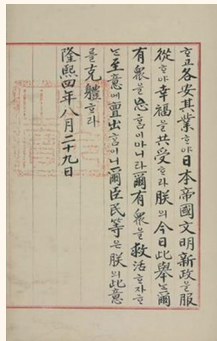 ᄒᆞ고各安其業ᄒᆞ야日本帝國文明新政을服
從ᄒᆞ야幸福을共受ᄒᆞ라朕의今日此擧ᄂᆞᆫ爾
有衆을忘홈이아니라爾有衆을救活ᄒᆞ자ᄒᆞ
ᄂᆞᆫ至意에亶出홈이니爾臣民等은朕의此意
를克體ᄒᆞ라
隆熙四年八月二十九日